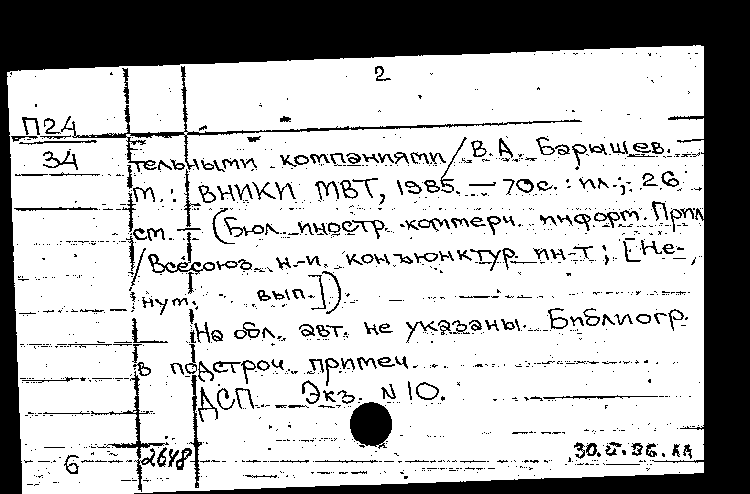 2
П24
34
тельными компаниями / В.А. Барышев.
М.: ВНИКИ МВТ, 1985. — 70с. : ил.; 26
см. — (Бюл. иностр. коммерч. информ. Прил
/ Всесоюз. н.-и. конъюнктур. ин-т; [Не-
нум. вып.]).
На обл. авт. не указаны. Библиогр.
в подстроч. примеч.
ДСП Экз. N 10.
6 2648